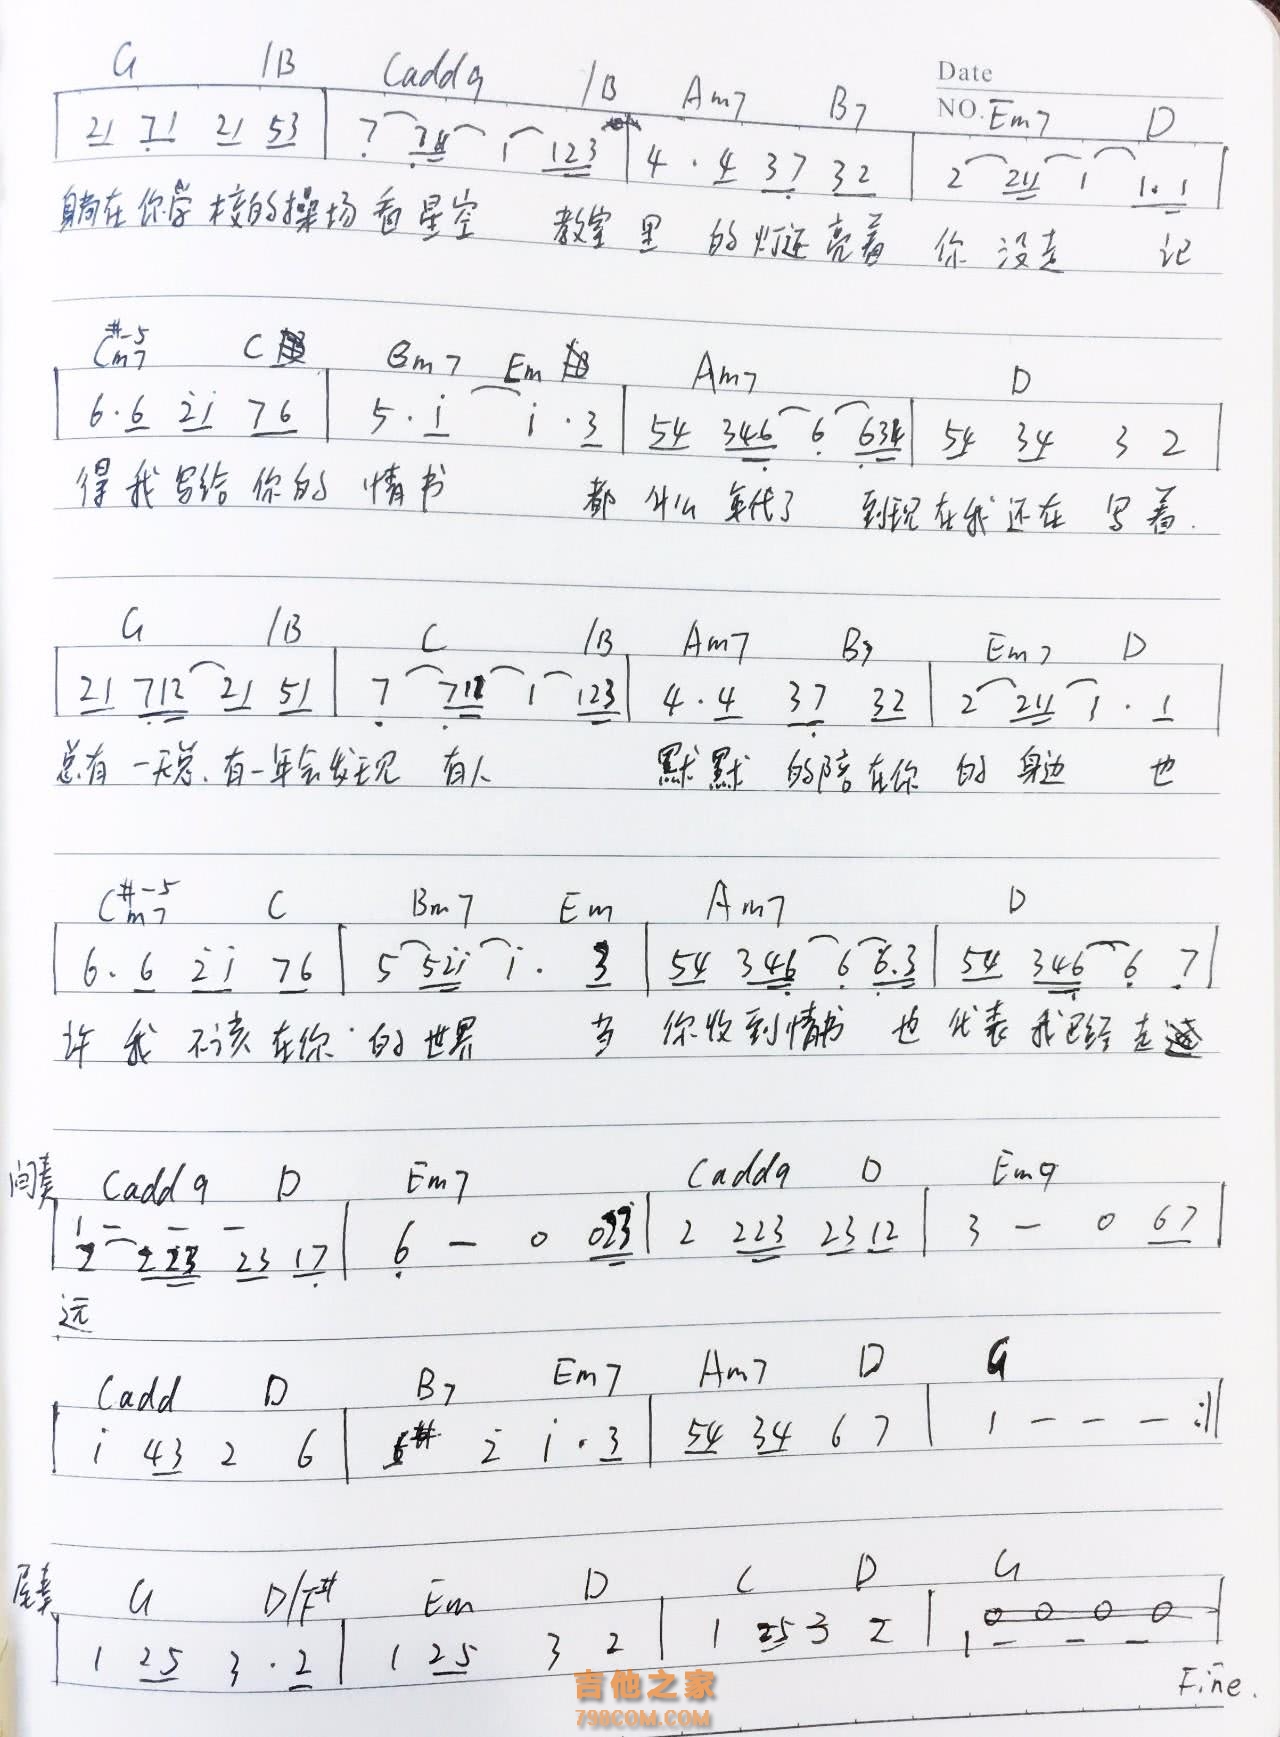 Date
NO.
G /B Cadd9 /B Am7 B7 Em7 D
21 71 21 53 | 7 71 1 123 | 4 · 4 37 32 | 2 21 1 1·1
躺在你学校的操场看星空 教室里 的灯还亮着 你 没走 记
C#m7-5 C Bm7 Em Am7 D
6·6 2i 76 | 5·i i·3 | 54 346 6 634 | 54 34 3 2
得我写给你的情书 都什么年代了 到现在我还在写着.
G /B C /B Am7 B7 Em7 D
21 712 21 51 | 7 711 1 123 | 4·4 37 32 | 2 21 1 · 1
总有一天总.有一年会发现 有人 默默 的陪在你 的 身边 也
C#m7-5 C Bm7 Em Am7 D
6·6 2i 76 | 5 52i i · 3 | 54 346 6 6.3 | 54 346 6 7
许我不该在你的世界 当 你收到情书 也 代表我已经走
间奏 Cadd9 D Em7 Cadd9 D Em9
1 – – –
2 223 23 17 | 6 – 0 023 | 2 223 23 12 | 3 – 0 67
远
Cadd D B7 Em7 Am7 D G
i 43 2 6 | # 2 i · 3 | 54 34 6 7 | 1 – – – :||
尾奏 G D/F# Em D C D G
1 25 3 · 2 | 1 25 3 2 | 1 25 3 2 | 1 – – –
Fine.
吉他之家
798COM.COM